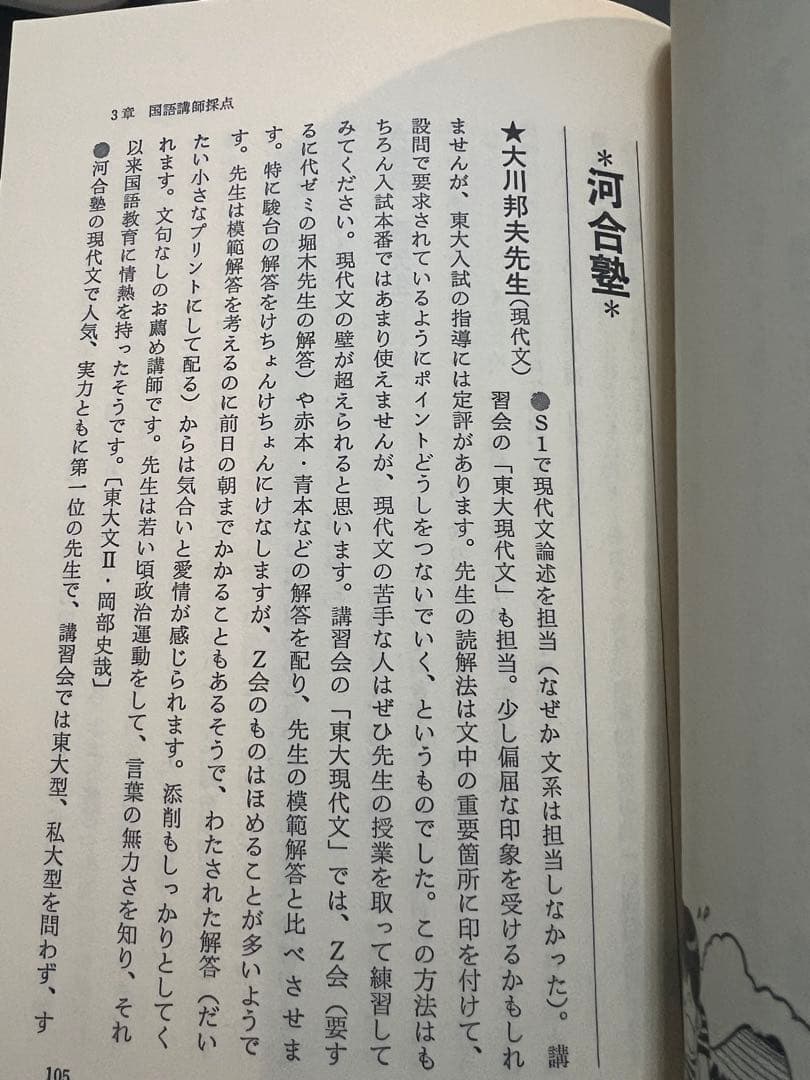 3章 国語講師採点
*河合塾*
★大川邦夫先生(現代文)
●S1で現代文論述を担当(なぜか文系は担当しなかった)。講
習会の「東大現代文」も担当。少し偏屈な印象を受けるかもしれ
ませんが、東大入試の指導には定評があります。先生の読解法は文中の重要箇所に印を付けて、
設問で要求されているようにポイントどうしをつないでいく、というものでした。この方法はも
ちろん入試本番ではあまり使えませんが、現代文の苦手な人はぜひ先生の授業を取って練習して
みてください。現代文の壁が超えられると思います。講習会の「東大現代文」では、Z会(要す
るに代ゼミの堀木先生の解答)や赤本・青本などの解答を配り、先生の模範解答と比べさせま
す。特に駿台の解答をけちょんけちょんにけなしますが、Z会のものはほめることが多いようで
す。先生は模範解答を考えるのに前日の朝までかかることもあるそうで、わたされた解答(だい
たい小さなプリントにして配る)からは気合いと愛情が感じられます。添削もしっかりとしてく
れます。文句なしのお薦め講師です。先生は若い頃政治運動をして、言葉の無力さを知り、それ
以来国語教育に情熱を持ったそうです。〔東大文Ⅱ・岡部史哉〕
●河合塾の現代文で人気、実力ともに第一位の先生で、講習会では東大型、私大型を問わず、す
105